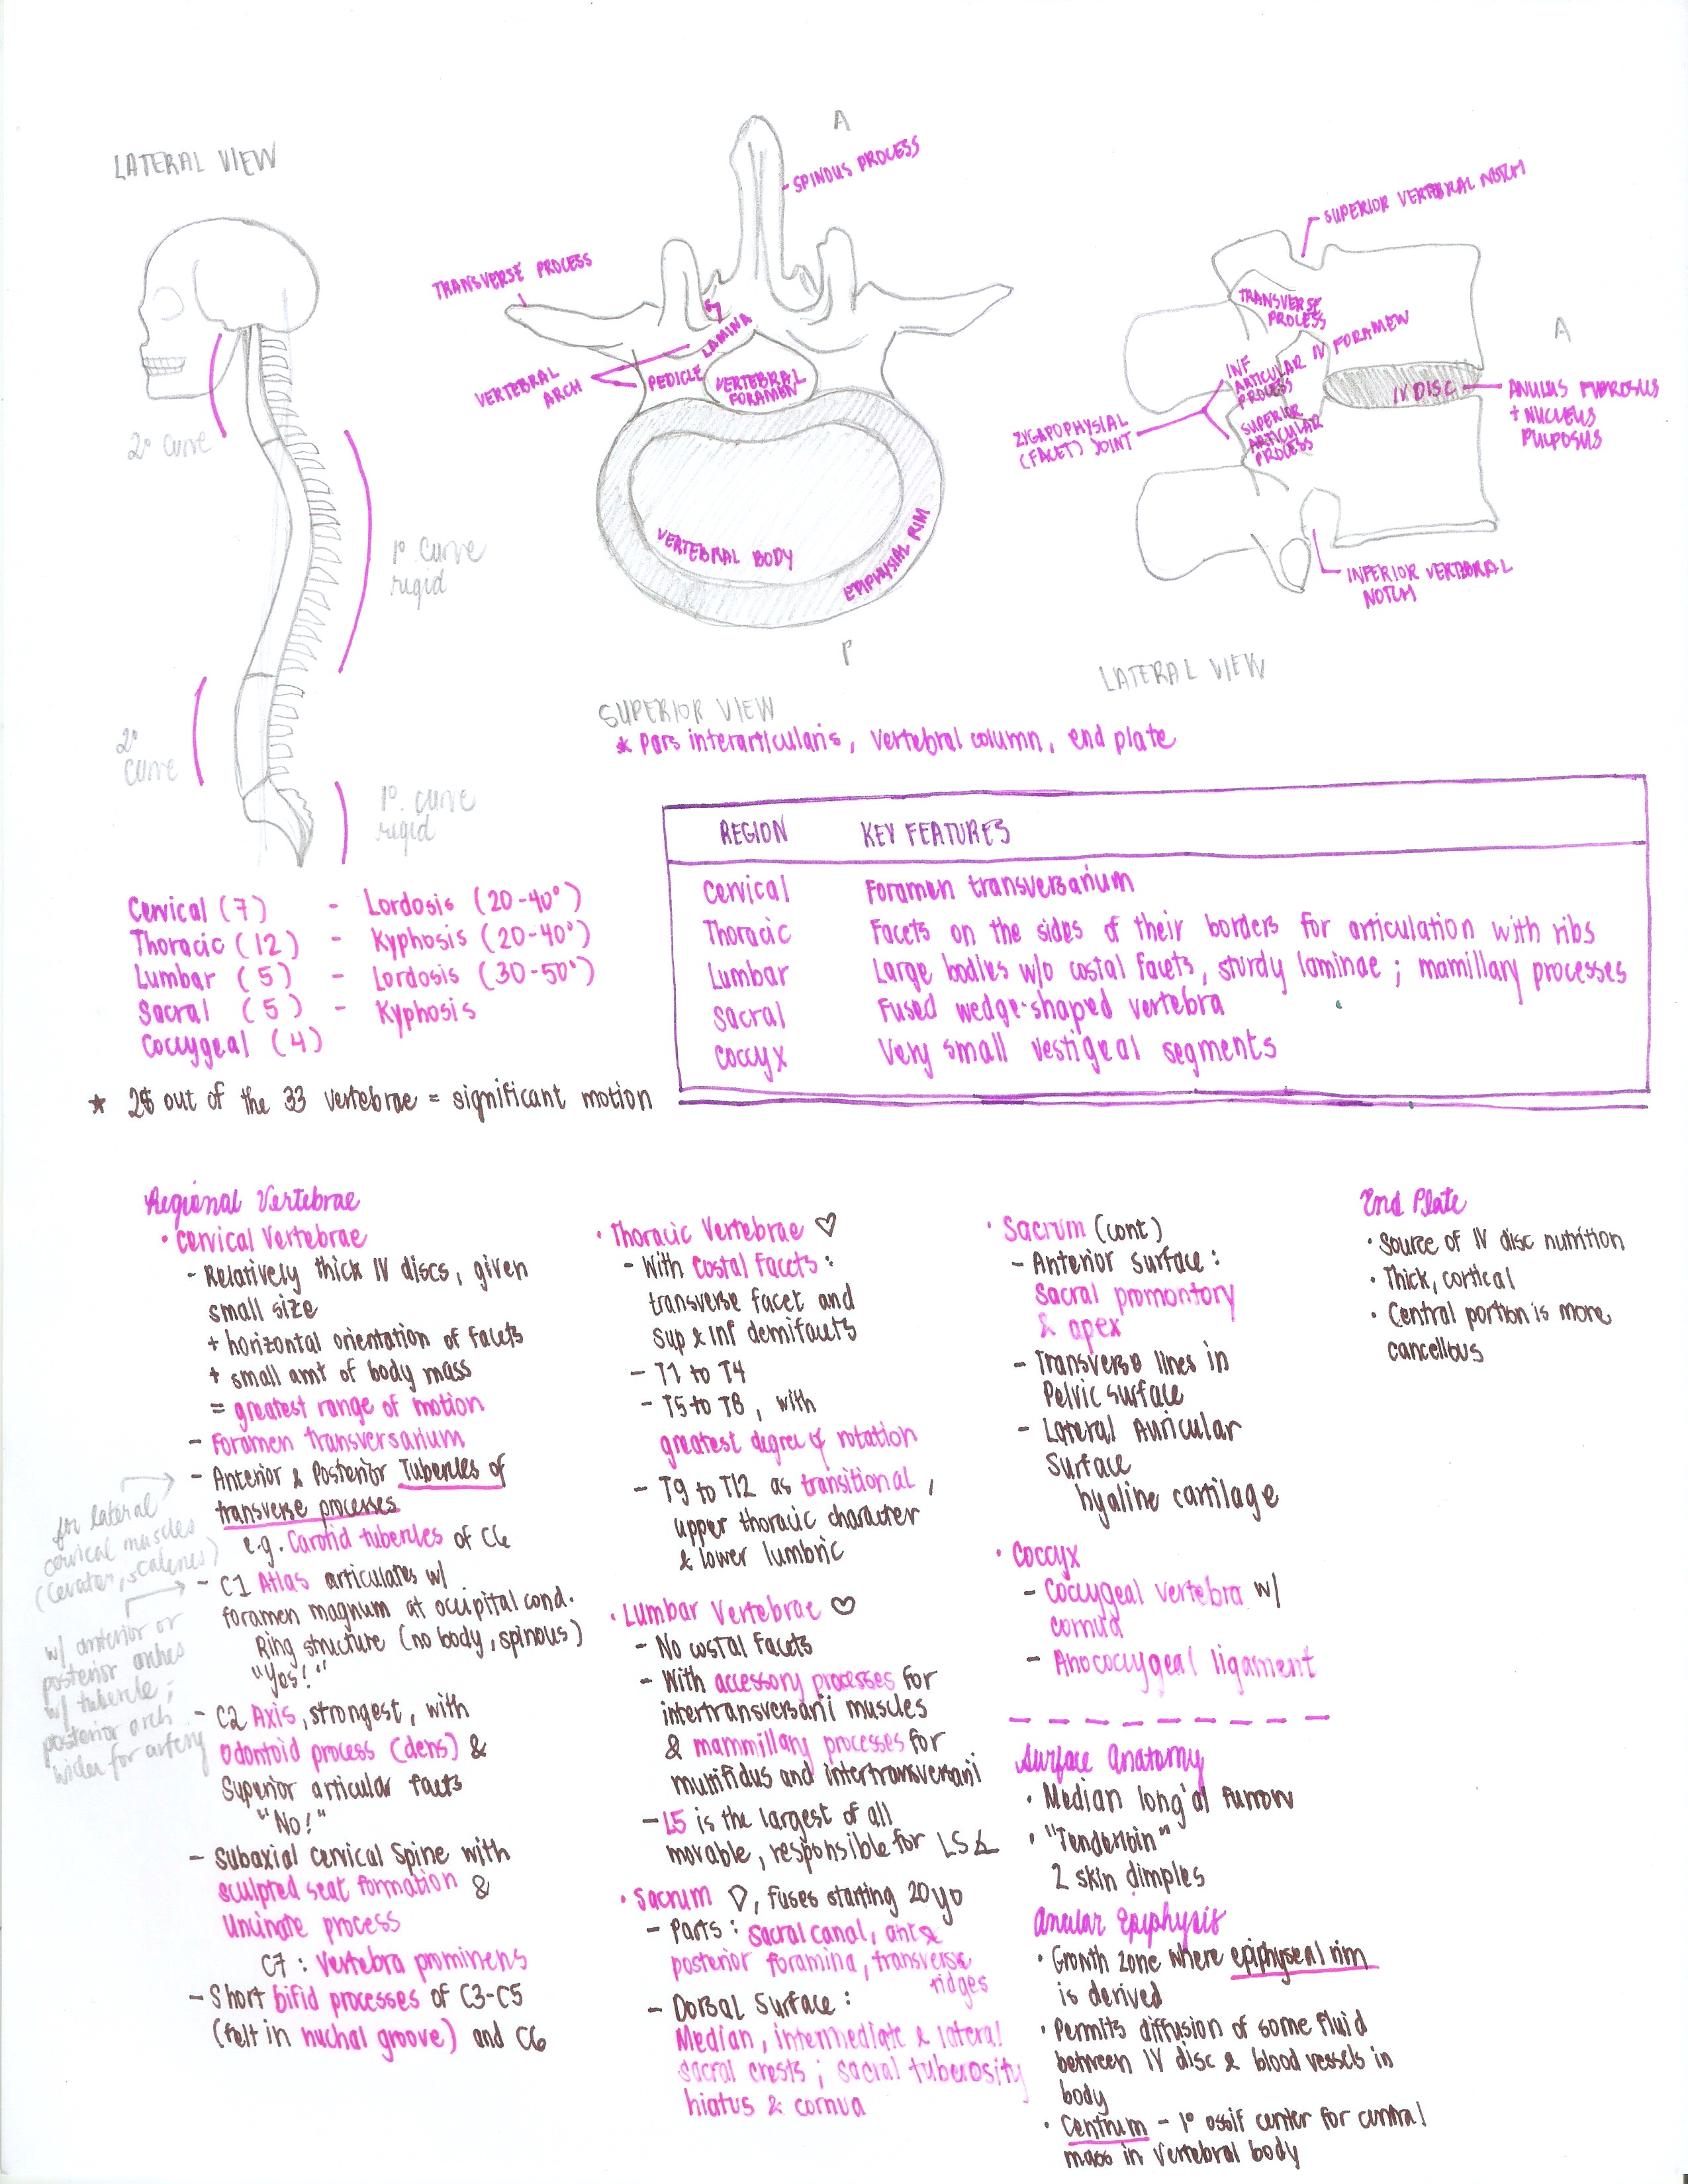 LATERAL VIEW
2° curve
1° curve
rigid
2°
curve
1°. curve
rigid
A
SPINOUS PROCESS
TRANSVERSE PROCESS
LAMINA
VERTEBRAL
ARCH
PEDICLE
VERTEBRAL
FORAMEN
VERTEBRAL BODY
EPIPHYSIAL RIM
P
SUPERIOR VIEW
SUPERIOR VERTEBRAL NOTCH
TRANSVERSE
PROCESS
A
IV FORAMEN
INF
ARTICULAR
PROCESS
IV DISC
ANULUS FIBROSUS
+ NUCLEUS
PULPOSUS
ZYGAPOPHYSIAL
(FACET) JOINT
SUPERIOR
ARTICULAR
PROCESS
INFERIOR VERTEBRAL
NOTCH
LATERAL VIEW
* Pars interarticularis, vertebral column, end plate
Cervical (7) - Lordosis (20-40°)
Thoracic (12) - Kyphosis (20-40°)
Lumbar (5) - Lordosis (30-50°)
Sacral (5) - Kyphosis
Coccygeal (4)
REGION KEY FEATURES
Cervical Foramen transversarium
Thoracic Facets on the sides of their borders for articulation with ribs
Lumbar Large bodies w/o costal facets, sturdy laminae; mamillary processes
Sacral Fused wedge-shaped vertebra
Coccyx Very small vestigeal segments
* out of the 33 vertebrae = significant motion
Regional Vertebrae
• Cervical Vertebrae
- Relatively thick IV discs, given
small size
+ horizontal orientation of facets
+ small amt of body mass
= greatest range of motion
- Foramen transversarium
- Anterior & Posterior Tubercles of
transverse processes
e.g. Carotid tubercles of C6
- C1 Atlas articulates w/
foramen magnum at occipital cond.
Ring structure (no body, spinous)
"Yes!"
- C2 Axis, strongest, with
Odontoid process (dens) &
Superior articular facts
"No!"
- Subaxial cervical Spine with
sculpted seat formation &
Uncinate process
C7: Vertebra prominens
- Short bifid processes of C3-C5
(felt in nuchal groove) and C6
for lateral
cervical muscles
(levator, scalenes)
w/ anterior or
posterior arches
w/ tubercle;
posterior arch
wider for artery
• Thoracic Vertebrae ♡
- With Costal Facets:
transverse facet and
sup & inf demifacets
- T1 to T4
- T5 to T8, with
greatest degree of rotation
- T9 to T12 as transitional,
upper thoracic character
& lower lumbric
• Lumbar Vertebrae ♡
- No costal Facets
- With accessory processes for
intertransversarii muscles
& mammillary processes for
multifidus and intertransversarii
- L5 is the largest of all
movable, responsible for LS∡
• Sacrum ▽, Fuses starting 20yo
- Parts: Sacral canal, ant &
posterior foramina, transverse
ridges
- Dorsal Surface:
Median, intermediate & lateral
sacral crests; sacral tuberosity
hiatus & cornua
• Sacrum (cont)
- Anterior surface:
Sacral promontory
& apex
- Transverse lines in
Pelvic surface
- Lateral Auricular
Surface
hyaline cartilage
• Coccyx
- Coccygeal vertebra w/
cornua
- Anococcygeal ligament
Surface Anatomy
• Median long'al Furrow
• "Tenderloin"
2 skin dimples
Anular Epiphysis
• Growth zone where epiphyseal rim
is derived
• Permits diffusion of some fluid
between IV disc & blood vessels in
body
• Centrum - 1° ossif center for central
mass in vertebral body
End Plate
• Source of IV disc nutrition
• Thick, cortical
• Central portion is more
cancellous